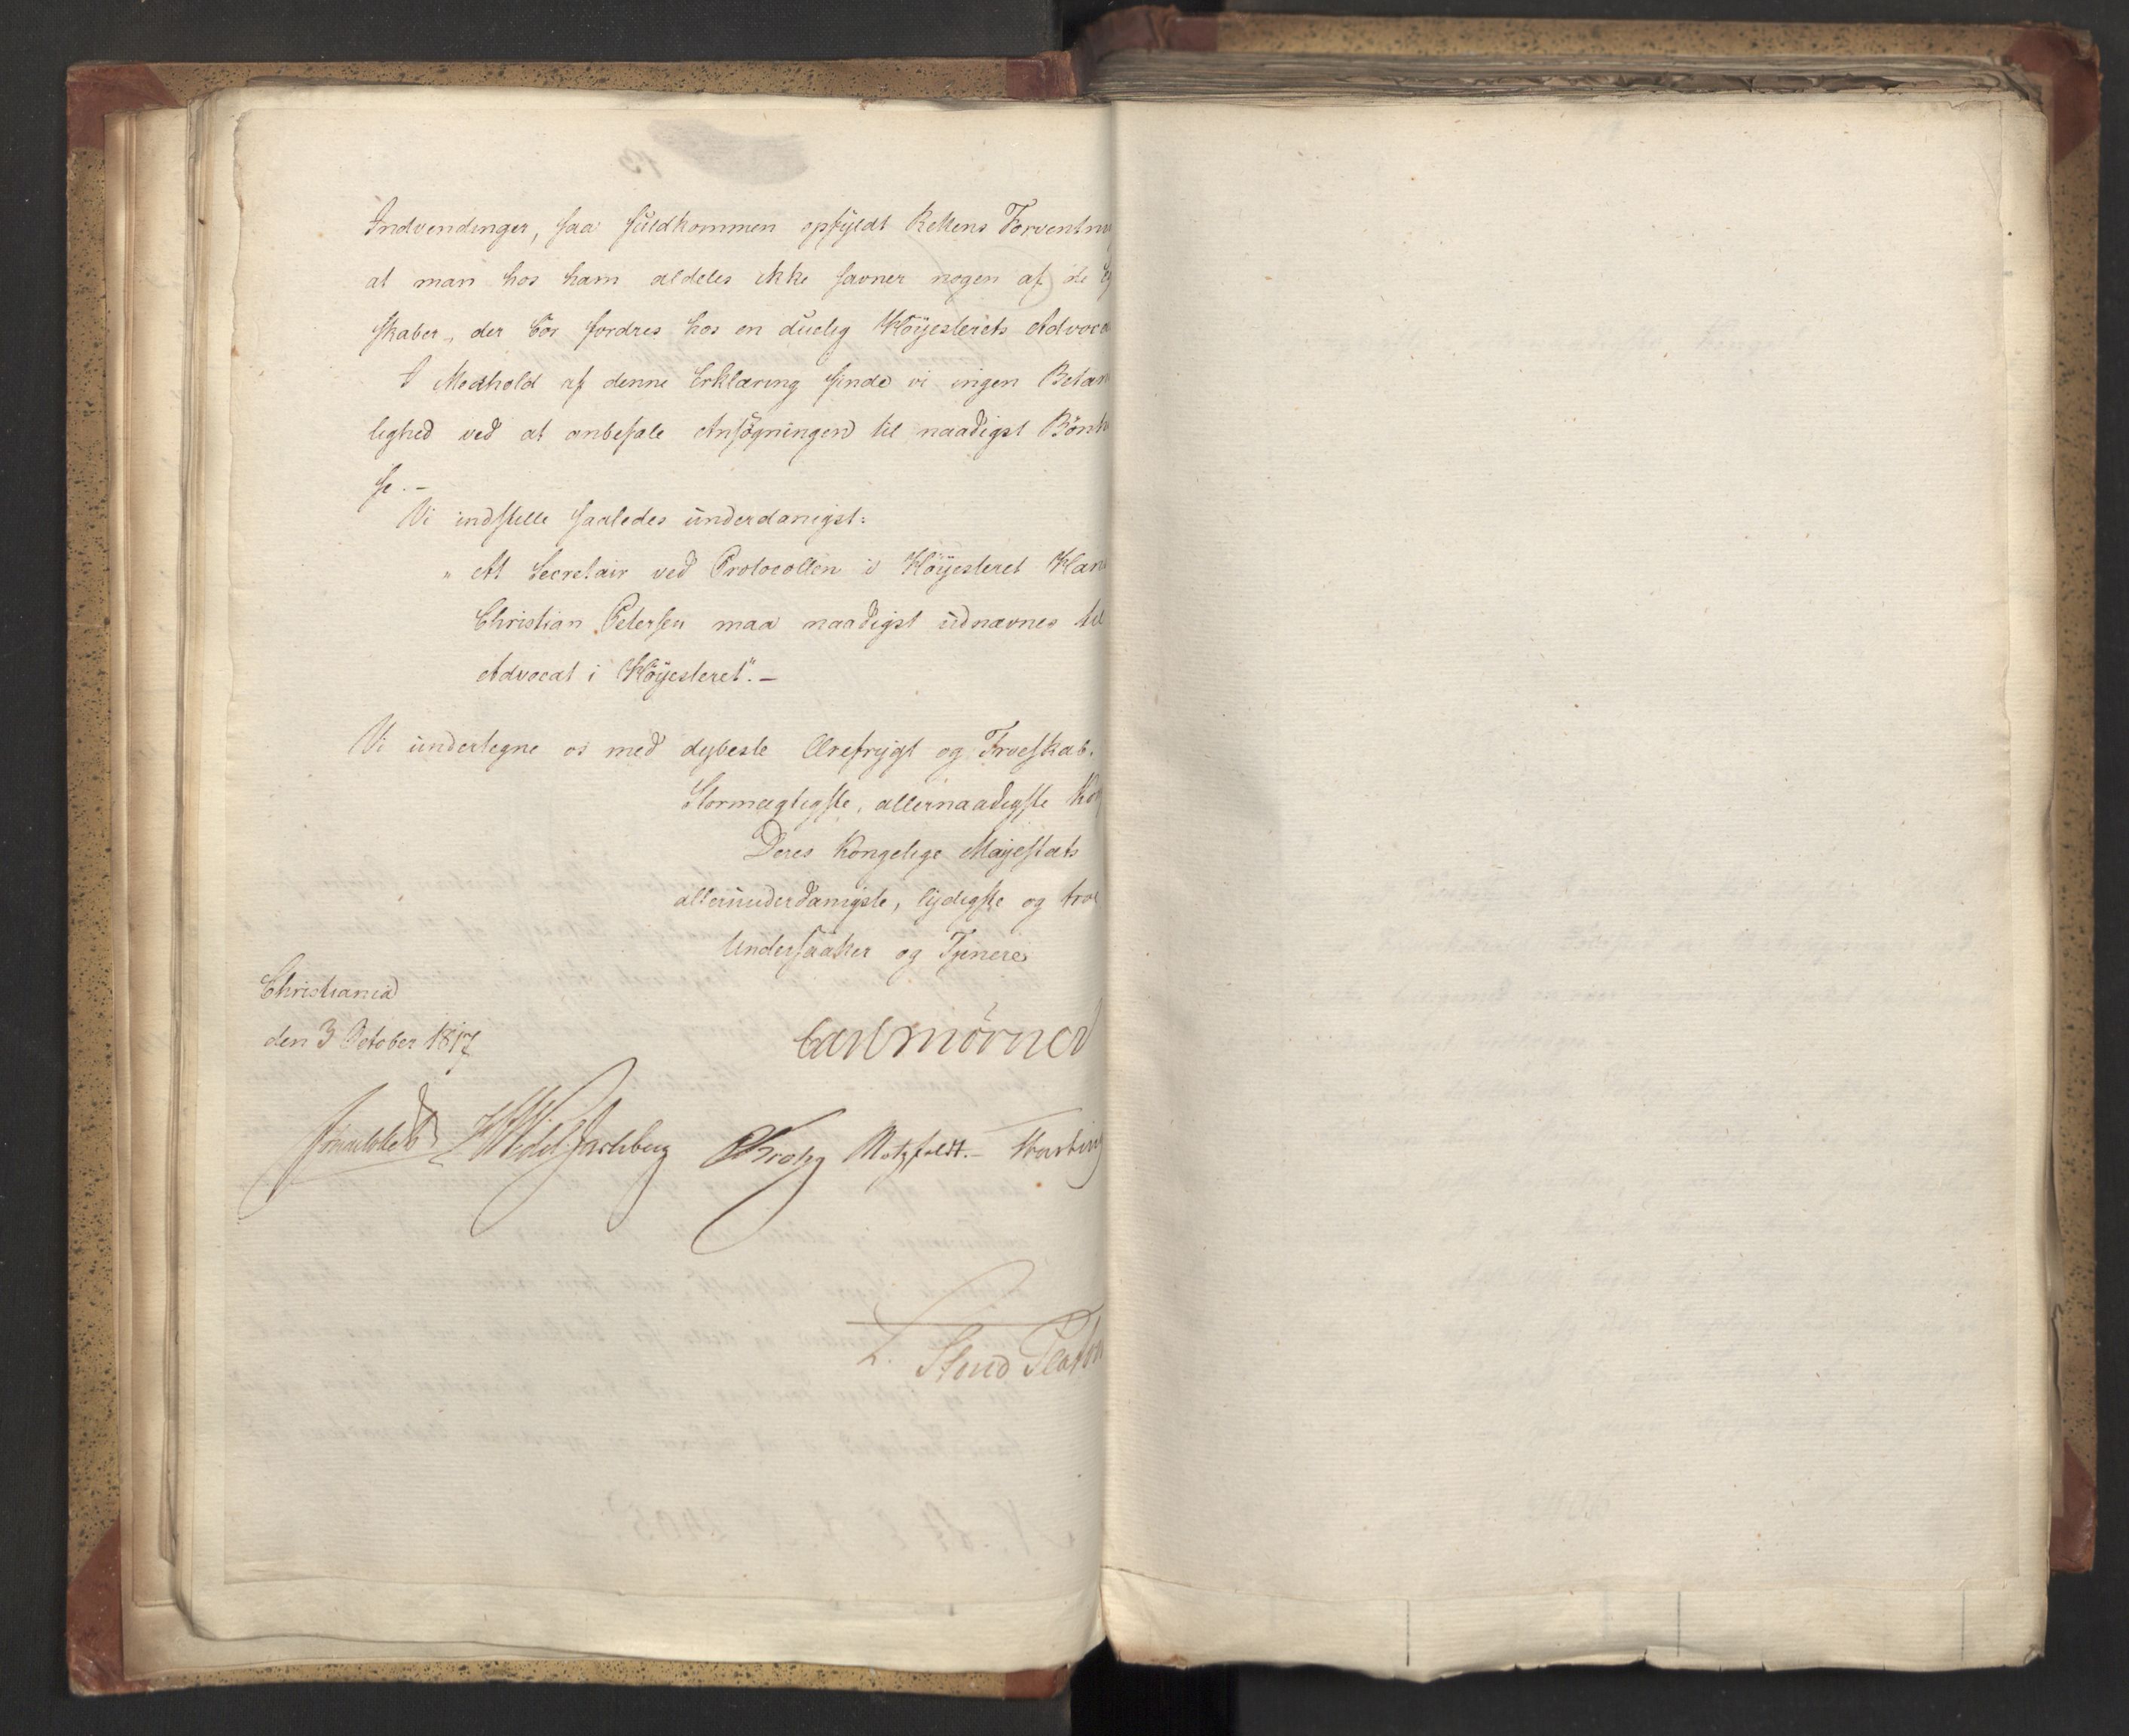 Indvendinger, saa fuldkommen opfÿldt Rettens Forventni
at man hos ham aldeles ikke savner nogen af de Eg
skaber, der bör fordres hos en duelig Höÿesterets Advoca
I Medhold af denne Erklæring finde vi ingen Betæn
lighed ved at anbefale Ansögningen til naadigst Bönhö
se. –
Vi indstille saaledes underdanigst:
" At Secretair ved Protocollen i Höÿesteret Hans
Christian Petersen maa naadigst udnævnes til
Advocat i Höÿesteret". –
Vi undertegne os med dybeste Ærefrÿgt og Troeskab.
Stormægtigste, allernaadigste Kon
Deres Kongelige Majestæts
allerunderdanigste, lÿdigste og troe
Undersaatter og Tjenere
Christiania
den 3 October 1817
Carl Mörner
HWedel Jarlsberg Krohg Motzfeldt. –
L. Stoud Platou